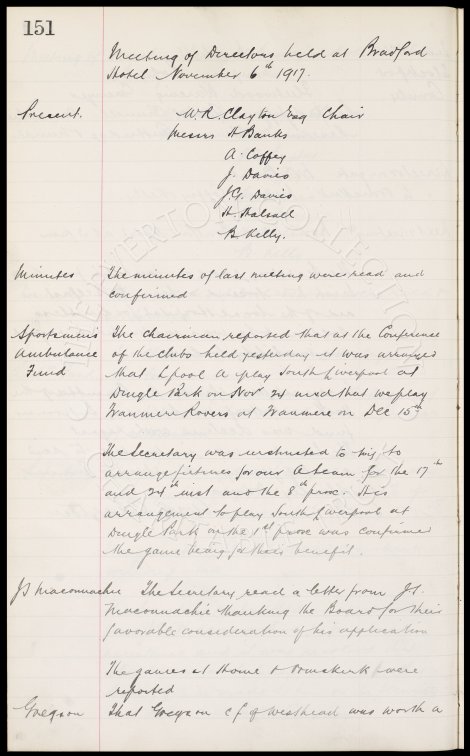 151
Meeting of Directors held at Bradford
Hotel November 6th 1917.
Present. W.R. Clayton Esq Chair
Messrs H Banks
A. Coffey
J. Davies
J.G. Davies
H. Halsall
B. Kelly.
Minutes The minutes of last meeting were read and
confirmed
Sportsmens The Chairman reported that at the Conference
Ambulance of the clubs held yesterday it was arranged
Fund that Lpool A play South Liverpool at
Dingle Park on Novr 24 and that we play
Tranmere Rovers at Tranmere on Dec 15th
The Secretary was instructed to try to
arrange fixtures for our A team for the 17th
and 24th inst and the 8th prox. His
arrangement to play South Liverpool at
Dingle Park on the 1st prox was confirmed
the game being for their benefit.
JS Maconnachie The Secretary read a letter from J.S.
Maconnachie thanking the Board for their
favorable consideration of his application
The games at Home & Ormskirk were
reported
Gregson That Gregson c f of Westhead was worth a
EVERTON COLLECTION